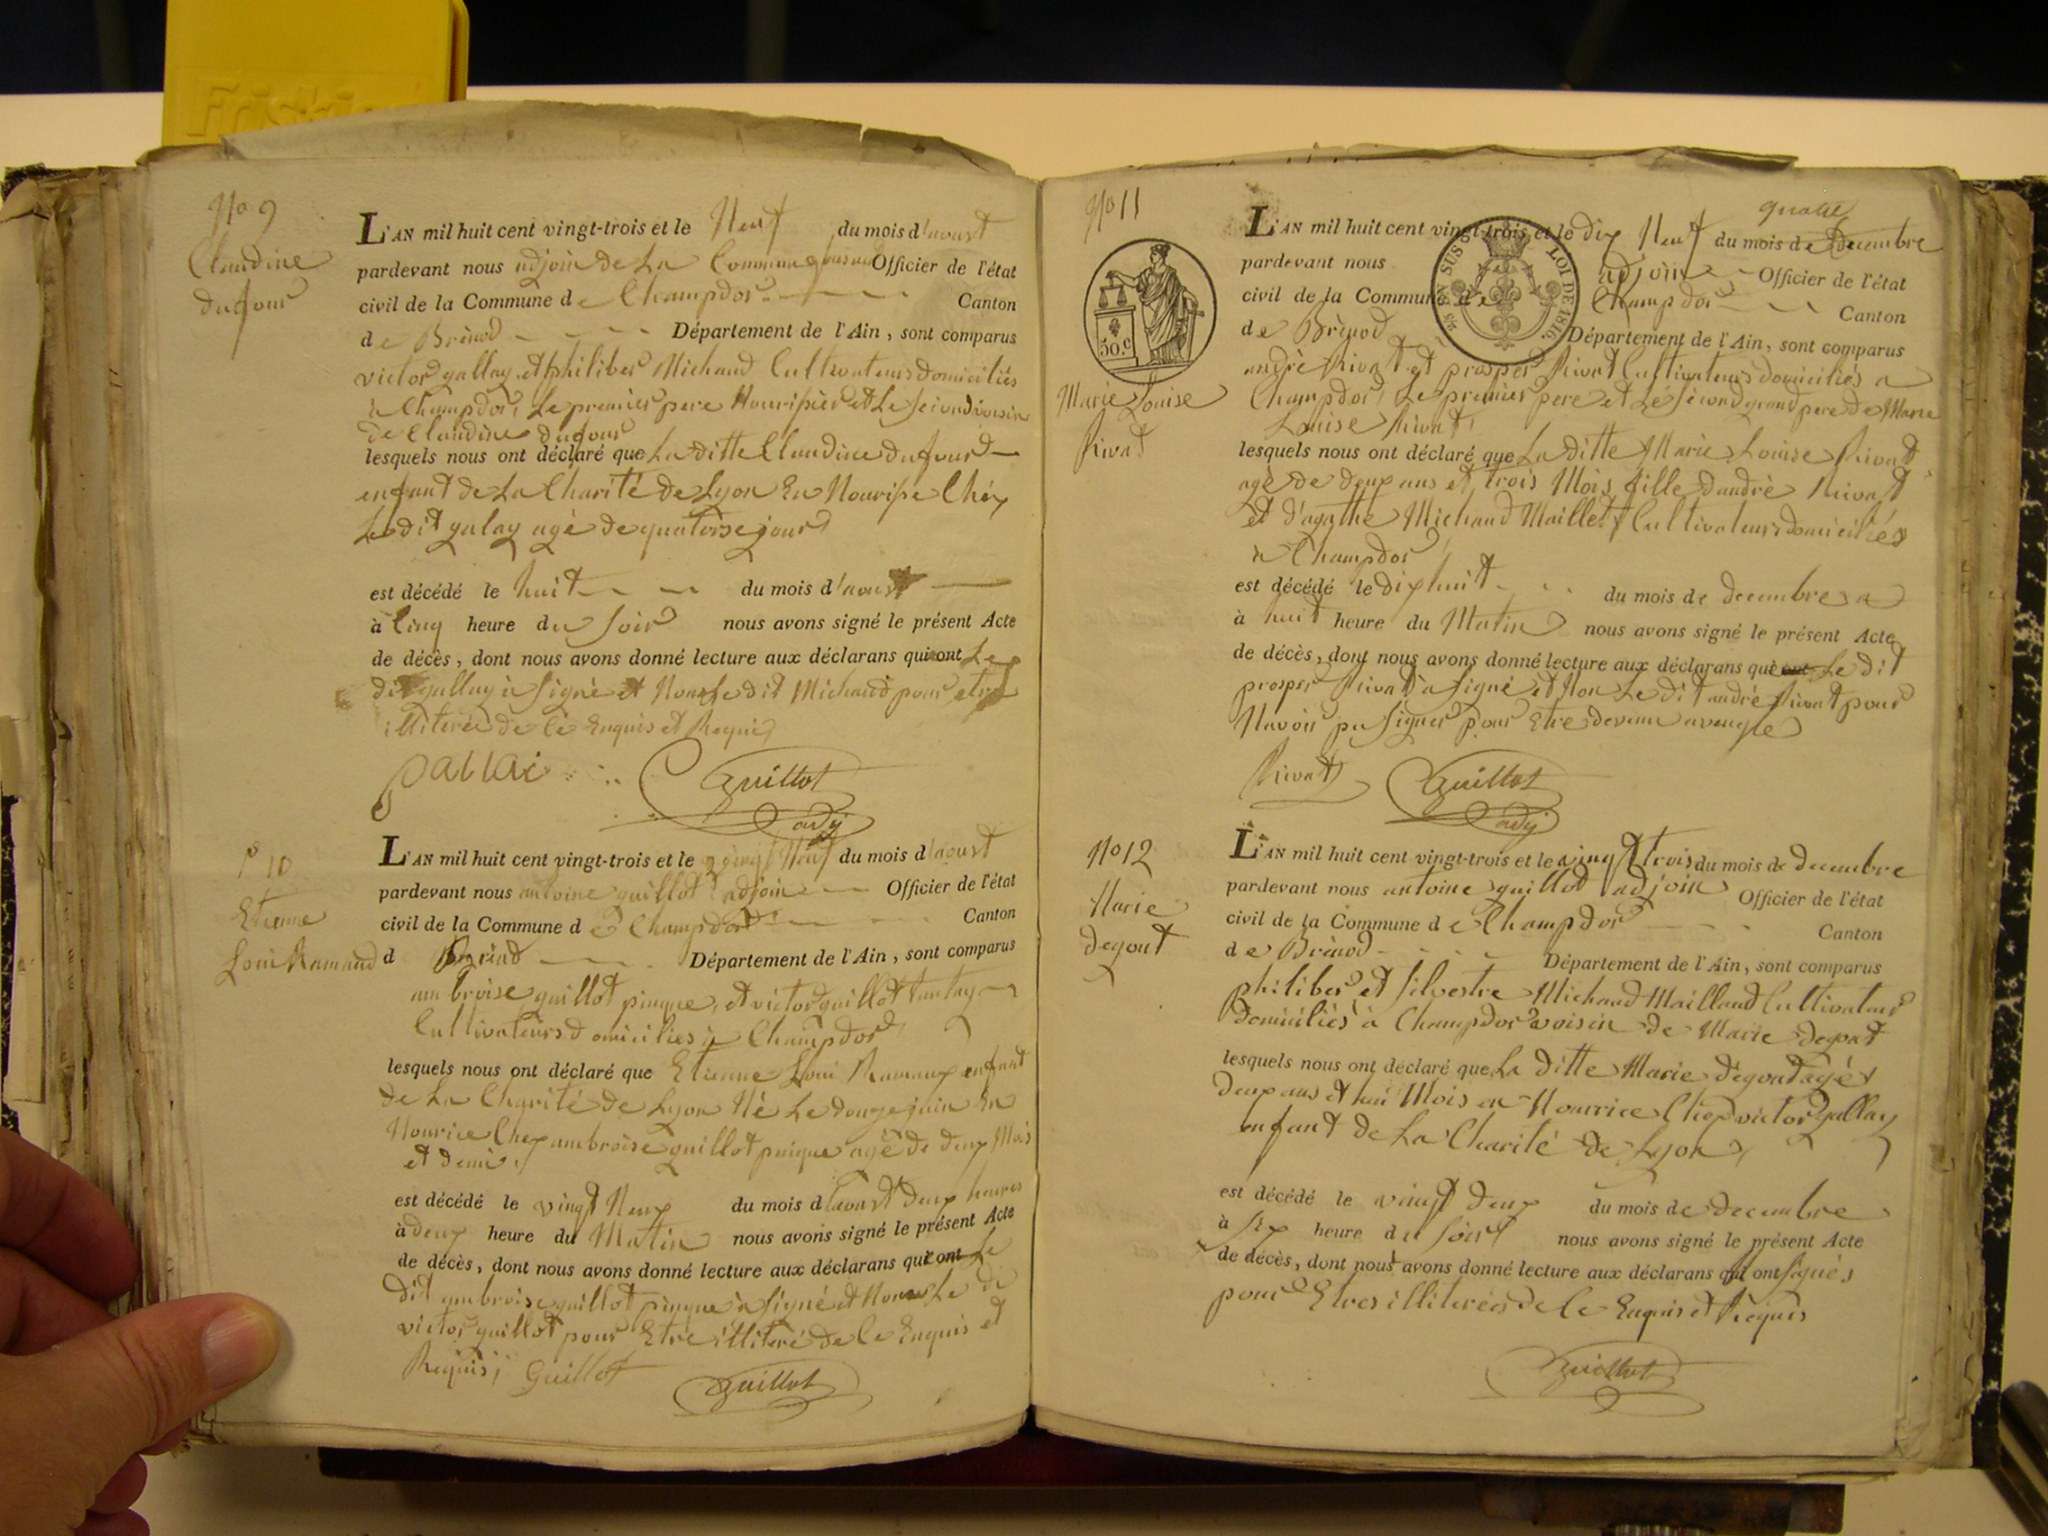 No 9
Claudine
dufour
L'AN mil huit cent vingt-trois et le Neuf du mois d'aoust
pardevant nous adjoin de La Commune Officier de l'état
civil de la Commune de Champdor Canton
de Brénod Département de l'Ain, sont comparus
victor gallay et philiber Michaud Cultivateurs domiciliés
a Champdor, Le premier pere Nourisier et Le second voisin
de Claudine dufour
lesquels nous ont déclaré que La ditte Claudine dufour
enfant de La Charité de Lyon En Nourise Chéz
Le dit galay agé de quatorse jours
est décédé le huit du mois d'aoust
à Cinq heure du soir nous avons signé le présent Acte
de décès, dont nous avons donné lecture aux déclarans qui ont Le
dit gallay à signé et Non Le dit Michaud pour etre
illiteré de Ce Enquis et Requis
gallai Guillot
adj
No 10
Etienne
Loui Ramaud
L'AN mil huit cent vingt-trois et le vingt Neuf du mois d'aoust
pardevant nous antoine guillot adjoin Officier de l'état
civil de la Commune de Champdor Canton
d Brénod Département de l'Ain, sont comparus
ambroise guillot pinque et victor guillot tantay
Cultivateurs domiciliés à Champdor
lesquels nous ont déclaré que Etienne Loui enfant
de La Charité de Lyon Né Le douze juin En
Nourice Chez ambroise guillot agé de deux Mois
et demi
est décédé le vingt Neuf du mois d'aoust deux heures
à deux heure du Matin nous avons signé le présent Acte
de décès, dont nous avons donné lecture aux déclarans qui ont Le
dit ambroise guillot pinque à signé et Non Le di
victor guillot pour Etre illiteré de Ce Enquis et
Requis, Guillot Guillot
No 11
50.c
Marie Louise
Rivat
EN SUS LOI DE 1816
quatre
L'AN mil huit cent vingt-trois et le dix Neuf du mois de Decembre
pardevant nous adjoin Officier de l'état
civil de la Commune de Champdor Canton
de Brénod Département de l'Ain, sont comparus
andré Rivat et prosper Rivat Cultivateurs domiciliés a
Champdor, Le premier pere et Le second grand pere de Marie
Louise Rivat
lesquels nous ont déclaré que La ditte Marie Louise Rivat
agé de deux ans et trois Mois fille d'andré Rivat
et d'agathe Michaud Maillet Cultivateurs domiciliés
à Champdor
est décédé le dix huit du mois de decembre a
à huit heure du Matin nous avons signé le présent Acte
de décès, dont nous avons donné lecture aux déclarans qui ont Le dit
prosper Rivat à signé et Non Le dit andré Rivat pour
Navoir pu signer pour Etre devenu aveugle
Rivat Guillot
adj
No 12
Marie
degout
L'AN mil huit cent vingt-trois et le vingt trois du mois de decembre
pardevant nous antoine guillot adjoin Officier de l'état
civil de la Commune de Champdor Canton
de Brénod Département de l'Ain, sont comparus
philiber et Silvestre Michaud Maillaud Cultivateur
domiciliés à Champdor voisin de Marie degout
lesquels nous ont déclaré que La ditte Marie degout agé
deux ans et hui Mois en Nourrice Chez victor gallay
enfant de La Charité de Lyon
est décédé le vingt deux du mois de decembre
à six heure du soir nous avons signé le présent Acte
de décès, dont nous avons donné lecture aux déclarans qui ont signés
pour Etres illiterés de Ce Enquis et Requis
Guillot